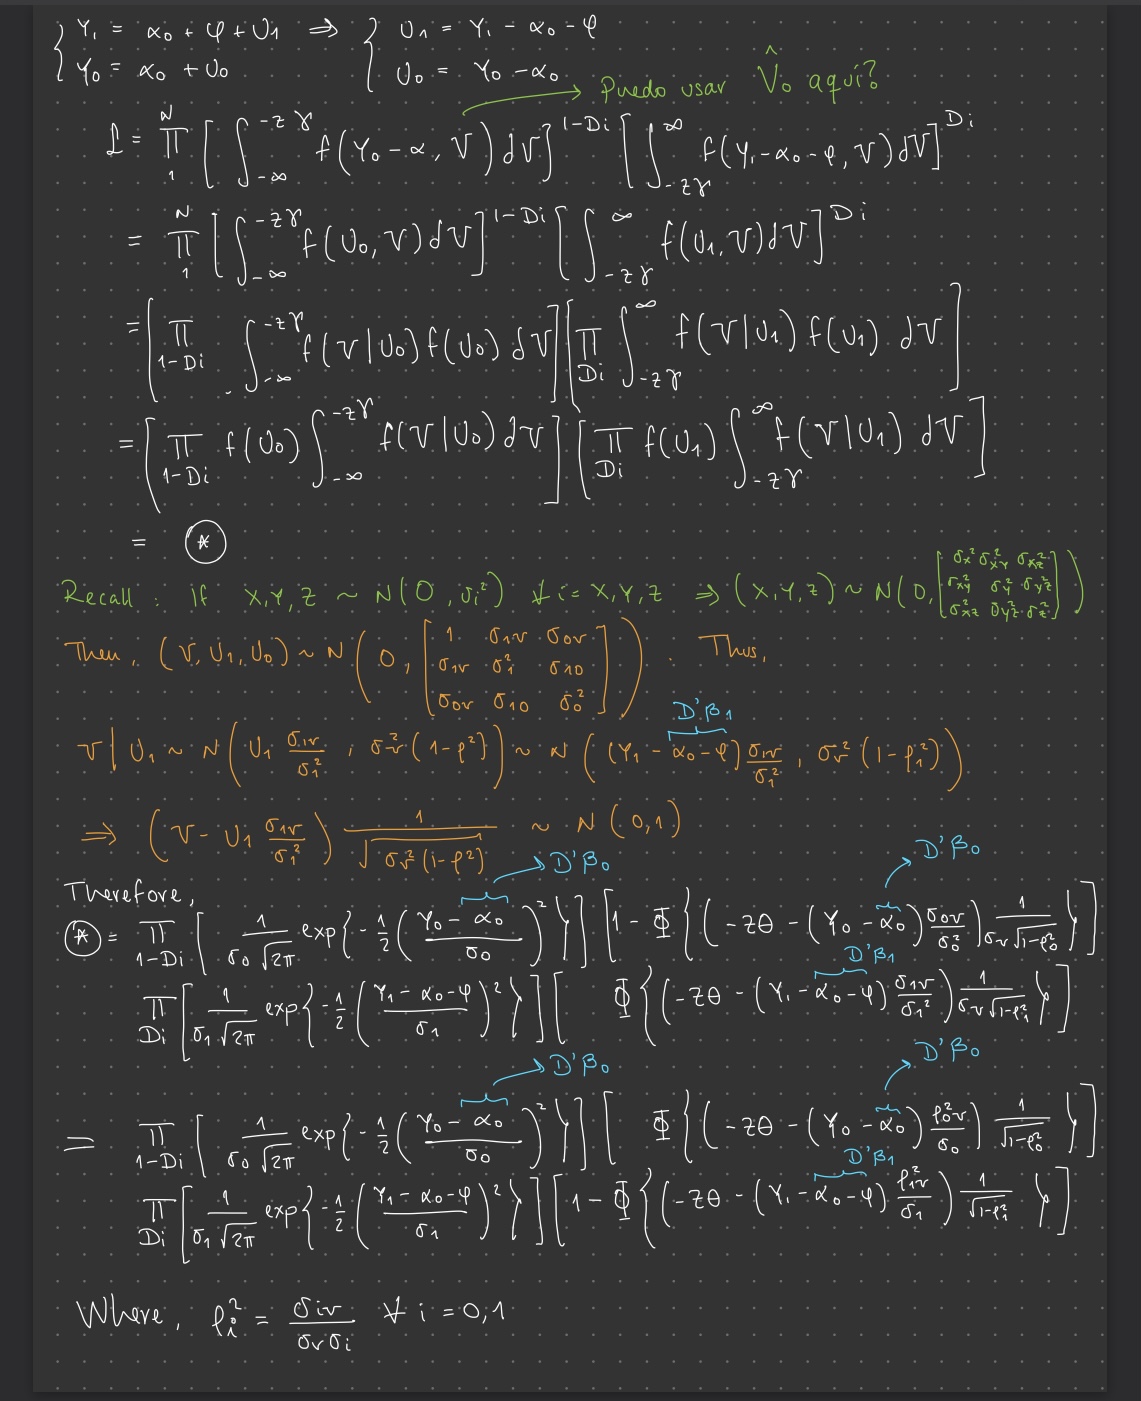 { Y₁ = α₀ + φ + U₁ ⇒ { U₁ = Y₁ - α₀ - φ
{ Y₀ = α₀ + U₀ { U₀ = Y₀ - α₀
→ Puedo usar V̂₀ aquí?
L = ∏₁ᴺ [ ∫_{-∞}^{-zγ} f(Y₀ - α, V) dV ]^{1-Di} [ ∫_{-zγ}^{∞} f(Y₁ - α₀ - φ, V) dV ]^{Di}
= ∏₁ᴺ [ ∫_{-∞}^{-zγ} f(U₀, V) dV ]^{1-Di} [ ∫_{-zγ}^{∞} f(U₁, V) dV ]^{Di}
= [ ∏_{1-Di} ∫_{-∞}^{-zγ} f(V|U₀) f(U₀) dV ] [ ∏_{Di} ∫_{-zγ}^{∞} f(V|U₁) f(U₁) dV ]
= [ ∏_{1-Di} f(U₀) ∫_{-∞}^{-zγ} f(V|U₀) dV ] [ ∏_{Di} f(U₁) ∫_{-zγ}^{∞} f(V|U₁) dV ]
= (*)
Recall: if X,Y,Z ~ N(0, σi²) ∀ i = X,Y,Z ⇒ (X,Y,Z) ~ N(0, [σx² σxy² σxz²; σxy² σy² σyz²; σxz² σyz² σz²])
Then, (V, U₁, U₀) ~ N(0, [1 σ1v σ0v; σ1v σ1² σ10; σ0v σ10 σ0²]). Thus,
D'β₁
V | U₁ ~ N(U₁ σ1v/σ1², σv²(1-ρ²)) ~ N((Y₁ - α₀ - φ) σ1v/σ1², σv²(1-ρ1²))
⇒ (V - U₁ σ1v/σ1²) 1/√(σv²(1-ρ²)) ~ N(0,1)
→ D'β₀ → D'β₀
Therefore,
(*) = ∏_{1-Di} [ 1/(σ0√2π) exp{ -1/2 ((Y₀ - α₀)/σ0)² } ] [ 1 - Φ{ (-zθ - (Y₀ - α₀) σ0v/σ0²) 1/(σv√(1-ρ0²)) } ]
D'β₁
∏_{Di} [ 1/(σ1√2π) exp{ -1/2 ((Y₁ - α₀ - φ)/σ1)² } ] [ Φ{ (-zθ - (Y₁ - α₀ - φ) σ1v/σ1²) 1/(σv√(1-ρ1²)) } ]
→ D'β₀ → D'β₀
= ∏_{1-Di} [ 1/(σ0√2π) exp{ -1/2 ((Y₀ - α₀)/σ0)² } ] [ Φ{ (-zθ - (Y₀ - α₀) ρ0v²/σ0) 1/√(1-ρ0²) } ]
D'β₁
∏_{Di} [ 1/(σ1√2π) exp{ -1/2 ((Y₁ - α₀ - φ)/σ1)² } ] [ 1 - Φ{ (-zθ - (Y₁ - α₀ - φ) ρ1v²/σ1) 1/√(1-ρ1²) } ]
Where, ρi² = σiv/(σvσi) ∀ i = 0,1